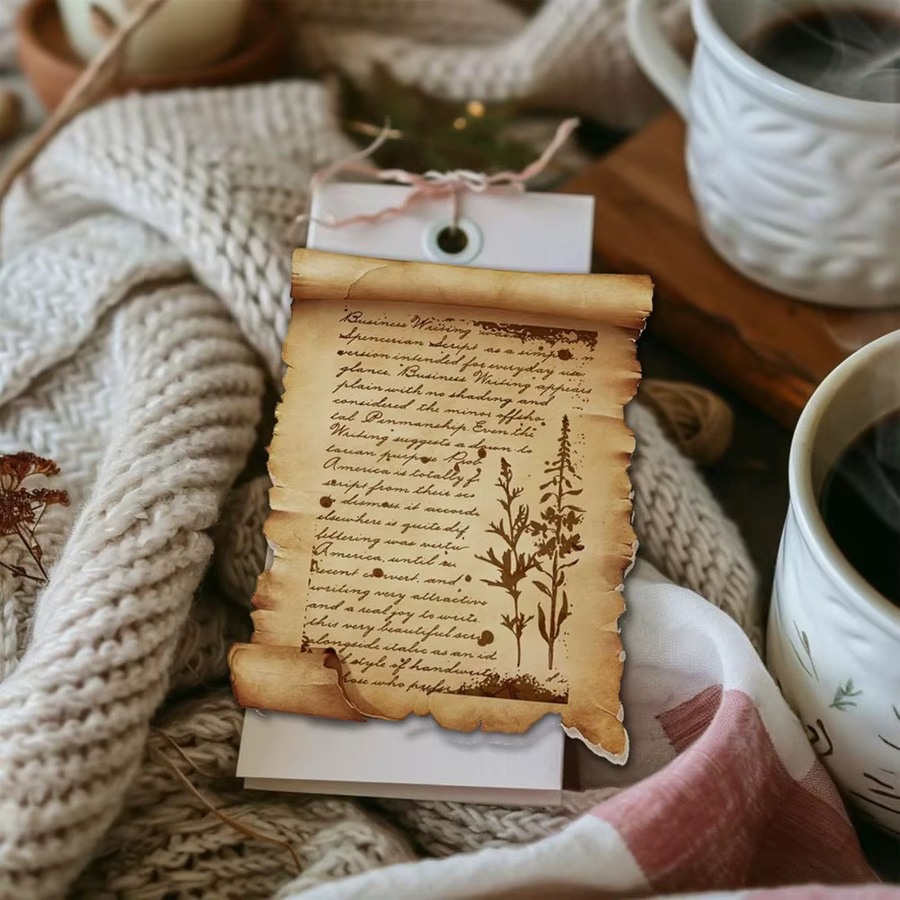 Business Writing
Spencerian Script as a simp
version intended for everyday use
glance. Business Writing appears
plain with no shading and
considered the minor offsho
cal Penmanship Even the
Writing suggests a down to
tarian purpose
America is totally f
script from their
dismiss it accord
elsewhere is quite dif
lettering was virtu
America, until
recent convert, and
writing very attractive
and a real joy to write
this very beautiful scr
alongside italic as an id
style of handwriting
those who prefer